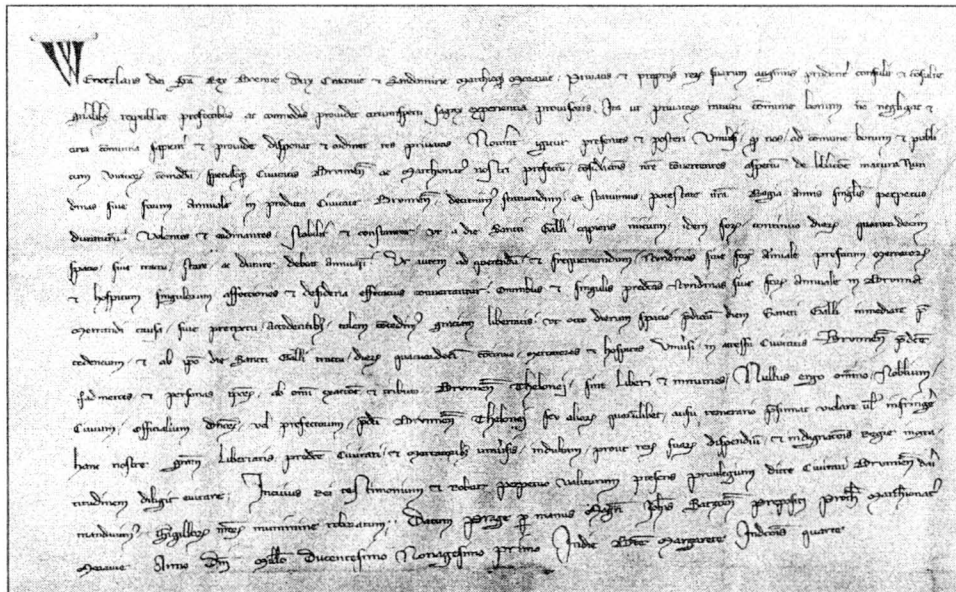 Wenezlaus dei gra Rex Boemie Dux Cracouie et Sandomirie Marchioq Morauie. Priuatis et propriis reru suarum augmentis prudenter consulit et
vtilitatibus reipublice profectibus ac comodis prouidet circumspecti sagax experientia prouisoris. Ita ut priuatorum intuitu comune bonum no negligat et
circa comunia sapienter et prouide disponat et ordinet res priuatas. Nouerit igitur presens etas et posteri Vniuersi q nos ad comune bonum et publi
cum comodu specialiq Ciuitatis Brunnen ac Marchionat nostri profectum nre conuertentes aspectu de matura Nun
dinas siue forum annuale in predicta Ciuitate Brunnen statuendum. Et statuimus potestate nra Regia annis singulis perpetuo
duraturu. Volentes et ordinantes stabiliter et constanter vt a die Sancti Galli capiens inicium idem foru continuo dieru quatuordecim
spacio siue tractu stare ac durare debeat annuati. Vt autem ad et frequentandum Nundinas siue foru annuale mercatoru
et hospitum singulorum affectiones et desideria efficacius conuertantur. Omnibus et singulis predictas Nundinas siue foru annuale in Brunna
mercandi causa siue accedentibus talem concedimus graciam libertatis vt octo dierum spacio diem Sancti Galli inmediate p
cedencium et ab ipo die Sancti Galli tractu dieru quatuordecim continuo mercatores et hospites Vniuersi in Ciuitatis Brunnen pdcte
quo ad merces et personas iporu ab omni exactoe et tributo Brunnen Thelonej sint liberi et inmunes. Nullus ergo omnino Nobilium
Ciuium Officialium vel prefectorum pdci Brunnen Thelonej seu alioru quorumlibet ausu temerario psumat violare vel infringere
hanc nostre gram libertatis predcte Ciuitati et mercatoribus vniuersis indultam prout reru suaru dispendiu et indignacois Regie
titudinem diligit euitare. In cuius rei testimonium et robur perpetuo valiturum presens priuilegium dicte Ciuitati Brunnen dari
mandauim Sigilloru nroru munimine roboratum. Datum Prage p manus Magri Johis Prepositi Marchionat
Morauie Anno Dni Mill Ducentesimo Nonagesimo primo In die Bte Margarete Indictois quarte